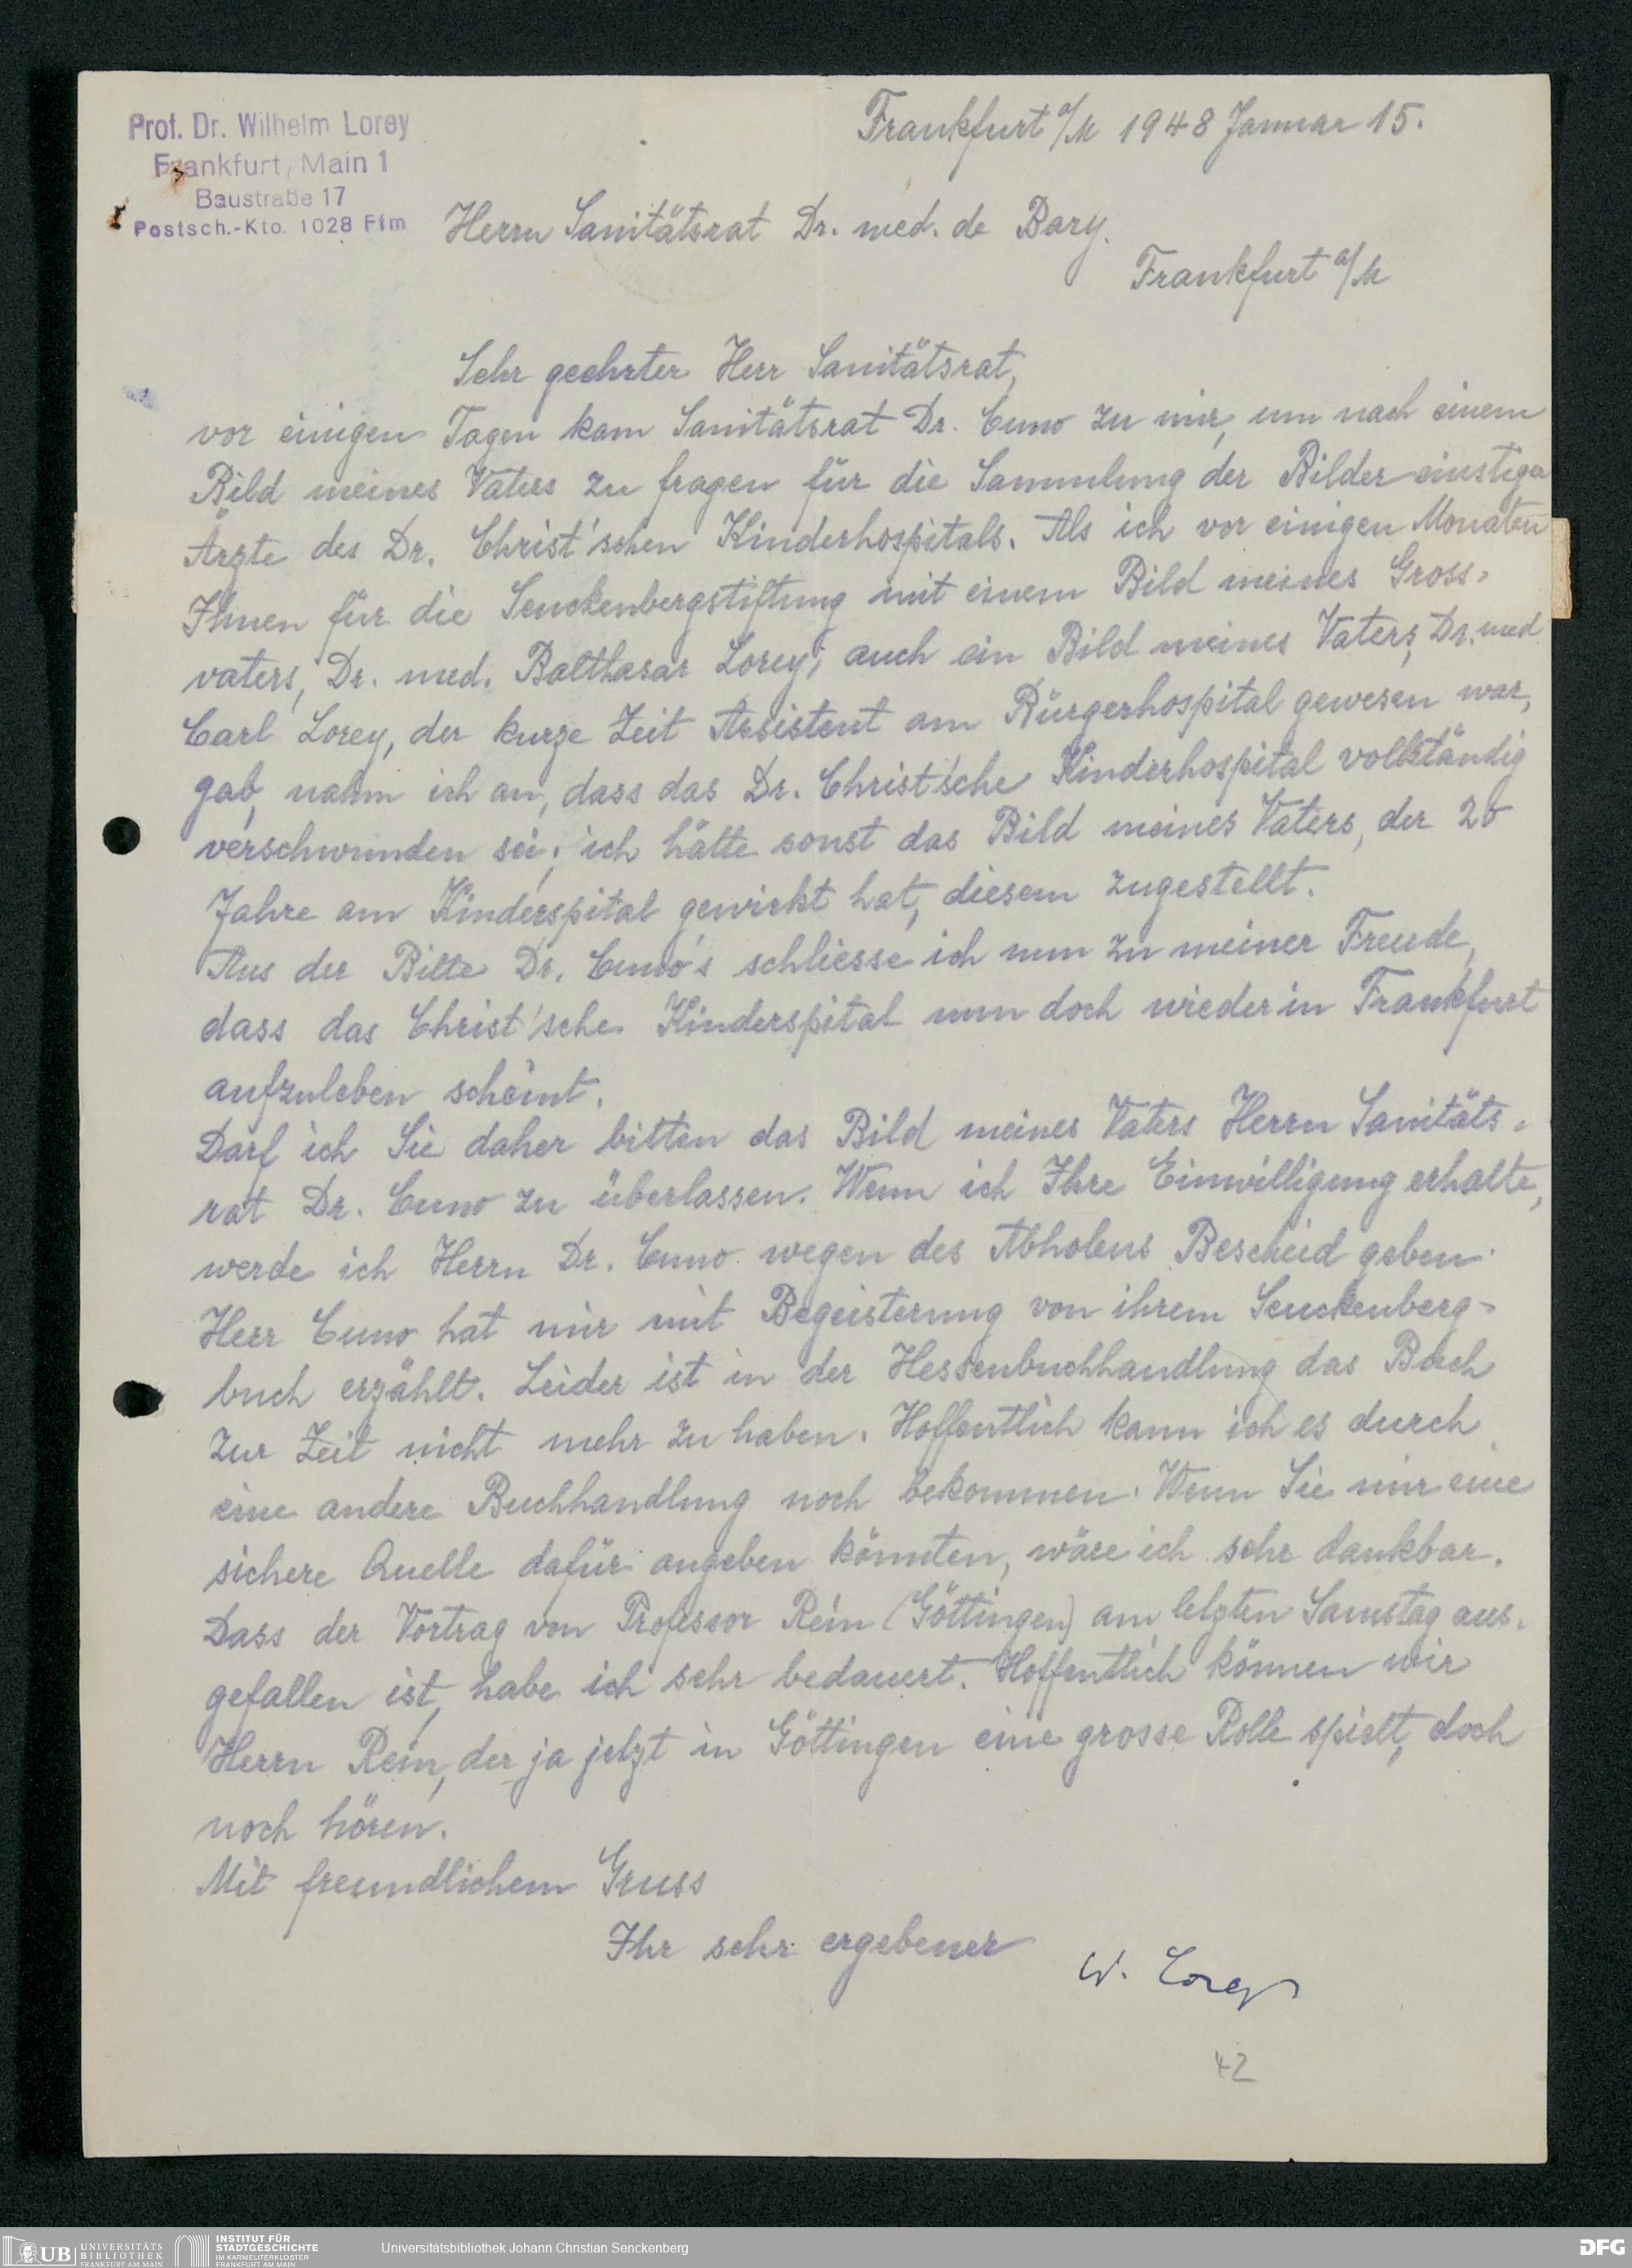 Prof. Dr. Wilhelm Lorey
Frankfurt, Main 1
Baustraße 17
Postsch.-Kto. 1028 Ffm
Frankfurt a/M 1948 Januar 15.
Herrn Sanitätsrat Dr. med. de Bary.
Frankfurt a/M
Sehr geehrter Herr Sanitätsrat,
vor einigen Tagen kam Sanitätsrat Dr. Cuno zu mir, um nach einem
Bild meines Vaters zu fragen für die Sammlung der Bilder einstiger
Ärzte des Dr. Christ'schen Kinderhospitals. Als ich vor einigen Monaten
Ihnen für die Senckenbergstiftung mit einem Bild meines Gross-
vaters, Dr. med. Balthasar Lorey, auch ein Bild meines Vaters, Dr. med.
Carl Lorey, der kurze Zeit Assistent am Bürgerhospital gewesen war,
gab, nahm ich an, dass das Dr. Christ'sche Kinderhospital vollständig
verschwunden sei; ich hätte sonst das Bild meines Vaters, der 26
Jahre am Kinderspital gewirkt hat, diesem zugestellt.
Aus der Bitte Dr. Cuno's schliesse ich nun zu meiner Freude,
dass das Christ'sche Kinderspital nun doch wieder in Frankfurt
aufzuleben scheint.
Darf ich Sie daher bitten das Bild meines Vaters Herrn Sanitäts-
rat Dr. Cuno zu überlassen. Wenn ich Ihre Einwilligung erhalte,
werde ich Herrn Dr. Cuno wegen des Abholens Bescheid geben.
Herr Cuno hat mir mit Begeisterung von ihrem Senckenberg-
buch erzählt. Leider ist in der Hessenbuchhandlung das Buch
zur Zeit nicht mehr zu haben. Hoffentlich kann ich es durch
eine andere Buchhandlung noch bekommen. Wenn Sie mir eine
sichere Quelle dafür angeben könnten, wäre ich sehr dankbar.
Dass der Vortrag von Professor Rein (Göttingen) am letzten Samstag aus-
gefallen ist, habe ich sehr bedauert. Hoffentlich können wir
Herrn Rein, der ja jetzt in Göttingen eine grosse Rolle spielt, doch
noch hören.
Mit freundlichem Gruss
Ihr sehr ergebener
W. Lorey
42
UB UNIVERSITÄTS
BIBLIOTHEK
FRANKFURT AM MAIN
INSTITUT FÜR
STADTGESCHICHTE
IM KARMELITERKLOSTER
FRANKFURT AM MAIN
Universitätsbibliothek Johann Christian Senckenberg
DFG